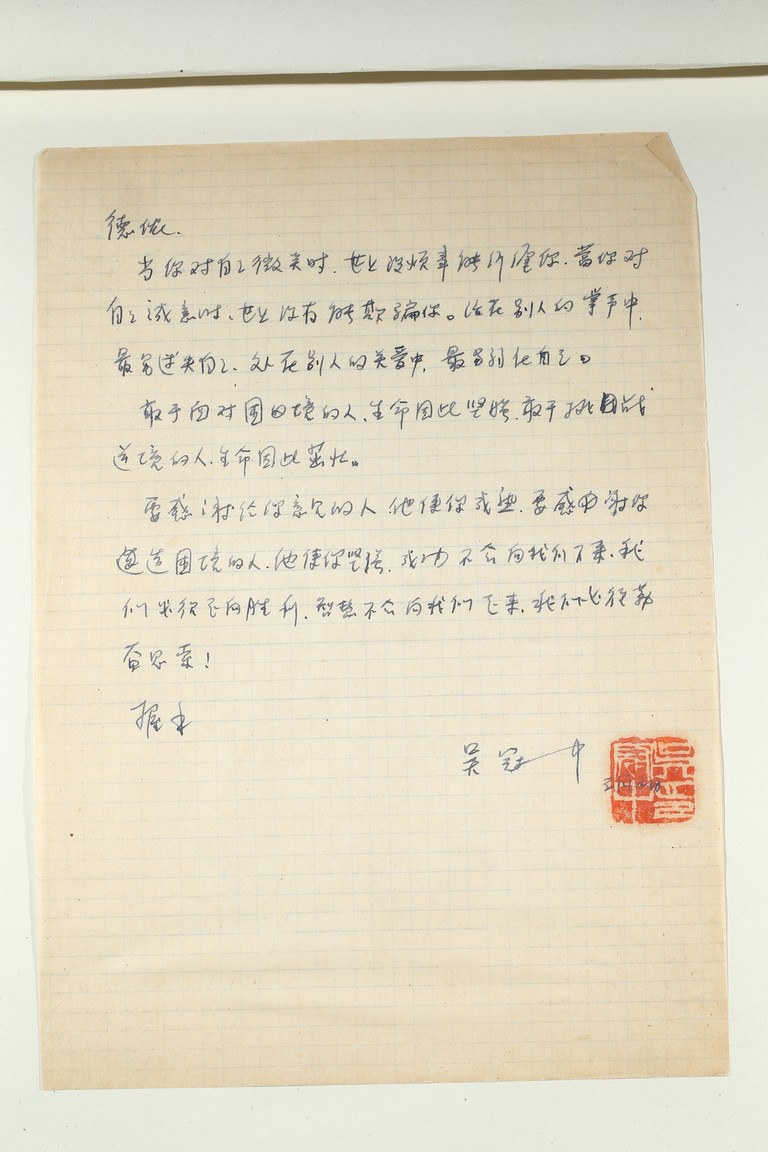 德优.
当你对自己微笑时.世上没烦事能纠缠你.當你对
自己诚意时、世上没有能欺骗你。活在别人的掌声中.
最易迷失自己、处在别人的关爱中,最易弱化自己。
敢于面对困境的人、生命因此坚强.敢于挑战
逆境的人.生命因此茁壮。
要感谢给你意见的人他使你成熟.要感谢你
造困境的人.他使你坚强.成功不会向我们下来.我
们必须飞向胜利.智慧不会向我们飞来.我们必须勤
奋思索!
握手
吴冠中